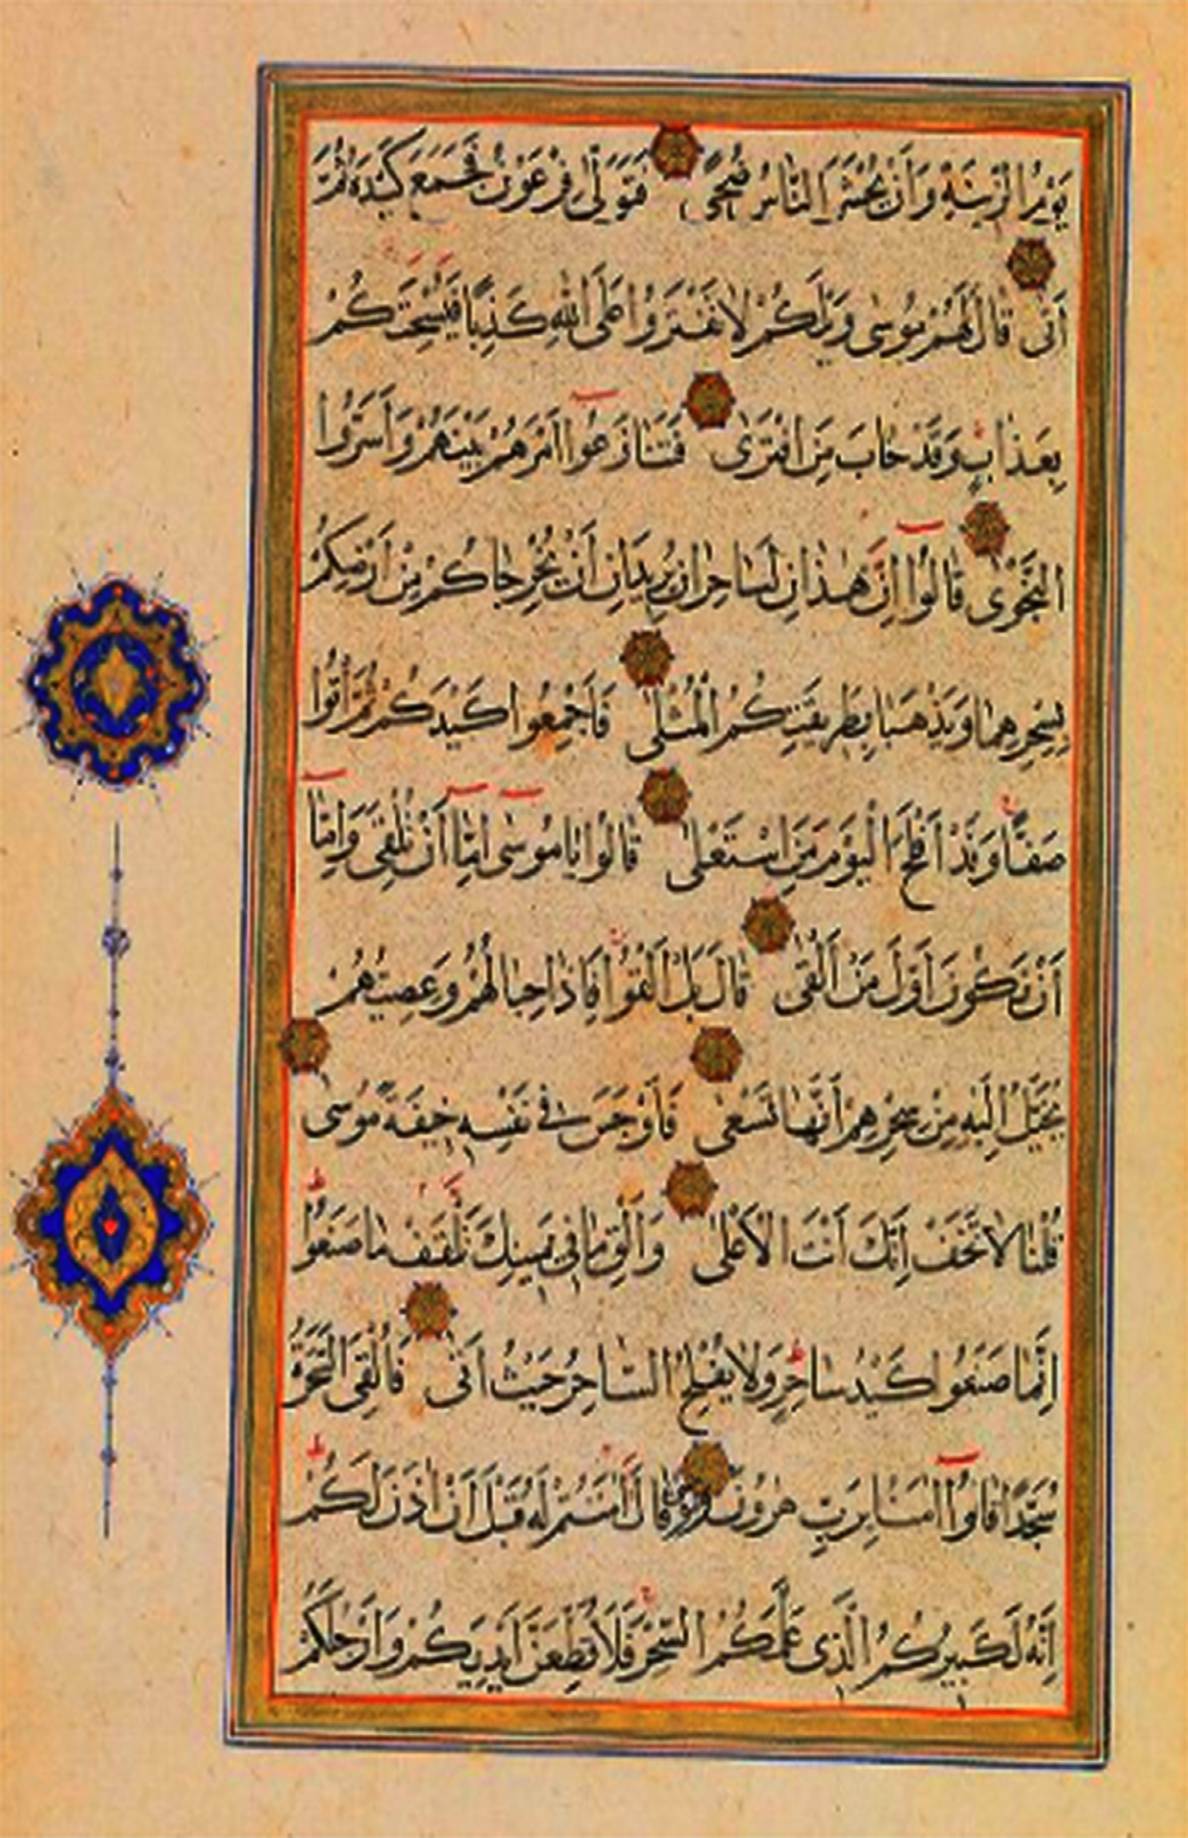 يَوْمُ الزّينَةِ وَاَنْ يُحْشَرَ النَّاسُ ضُحًى فَتَوَلّٰى فِرْعَوْنُ فَجَمَعَ كَيْدَهُ ثُمَّ
اَتٰى قَالَ لَهُمْ مُوسٰى وَيْلَكُمْ لَا تَفْتَرُوا عَلَى اللّٰهِ كَذِبًا فَيُسْحِتَكُمْ
بِعَذَابٍ وَقَدْ خَابَ مَنِ افْتَرٰى فَتَنَازَعُوا اَمْرَهُمْ بَيْنَهُمْ وَاَسَرُّوا
النَّجْوٰى قَالُوا اِنْ هٰذَانِ لَسَاحِرَانِ يُرِيدَانِ اَنْ يُخْرِجَاكُمْ مِنْ اَرْضِكُمْ
بِسِحْرِهِمَا وَيَذْهَبَا بِطَرِيقَتِكُمُ الْمُثْلٰى فَاَجْمِعُوا كَيْدَكُمْ ثُمَّ ائْتُوا
صَفًّا وَقَدْ اَفْلَحَ الْيَوْمَ مَنِ اسْتَعْلٰى قَالُوا يَا مُوسٰى اِمَّا اَنْ تُلْقِىَ وَاِمَّا
اَنْ نَكُونَ اَوَّلَ مَنْ اَلْقٰى قَالَ بَلْ اَلْقُوا فَاِذَا حِبَالُهُمْ وَعِصِيُّهُمْ
يُخَيَّلُ اِلَيْهِ مِنْ سِحْرِهِمْ اَنَّهَا تَسْعٰى فَاَوْجَسَ فى نَفْسِهِ خِيفَةً مُوسٰى
قُلْنَا لَا تَخَفْ اِنَّكَ اَنْتَ الْاَعْلٰى وَاَلْقِ مَا فى يَمِينِكَ تَلْقَفْ مَا صَنَعُوا
اِنَّمَا صَنَعُوا كَيْدُ سَاحِرٍ وَلَا يُفْلِحُ السَّاحِرُ حَيْثُ اَتٰى فَاُلْقِىَ السَّحَرَةُ
سُجَّدًا قَالُوا اٰمَنَّا بِرَبِّ هٰرُونَ وَمُوسٰى قَالَ اٰمَنْتُمْ لَهُ قَبْلَ اَنْ اٰذَنَ لَكُمْ
اِنَّهُ لَكَبِيرُكُمُ الَّذى عَلَّمَكُمُ السِّحْرَ فَلَاُقَطِّعَنَّ اَيْدِيَكُمْ وَاَرْجُلَكُمْ